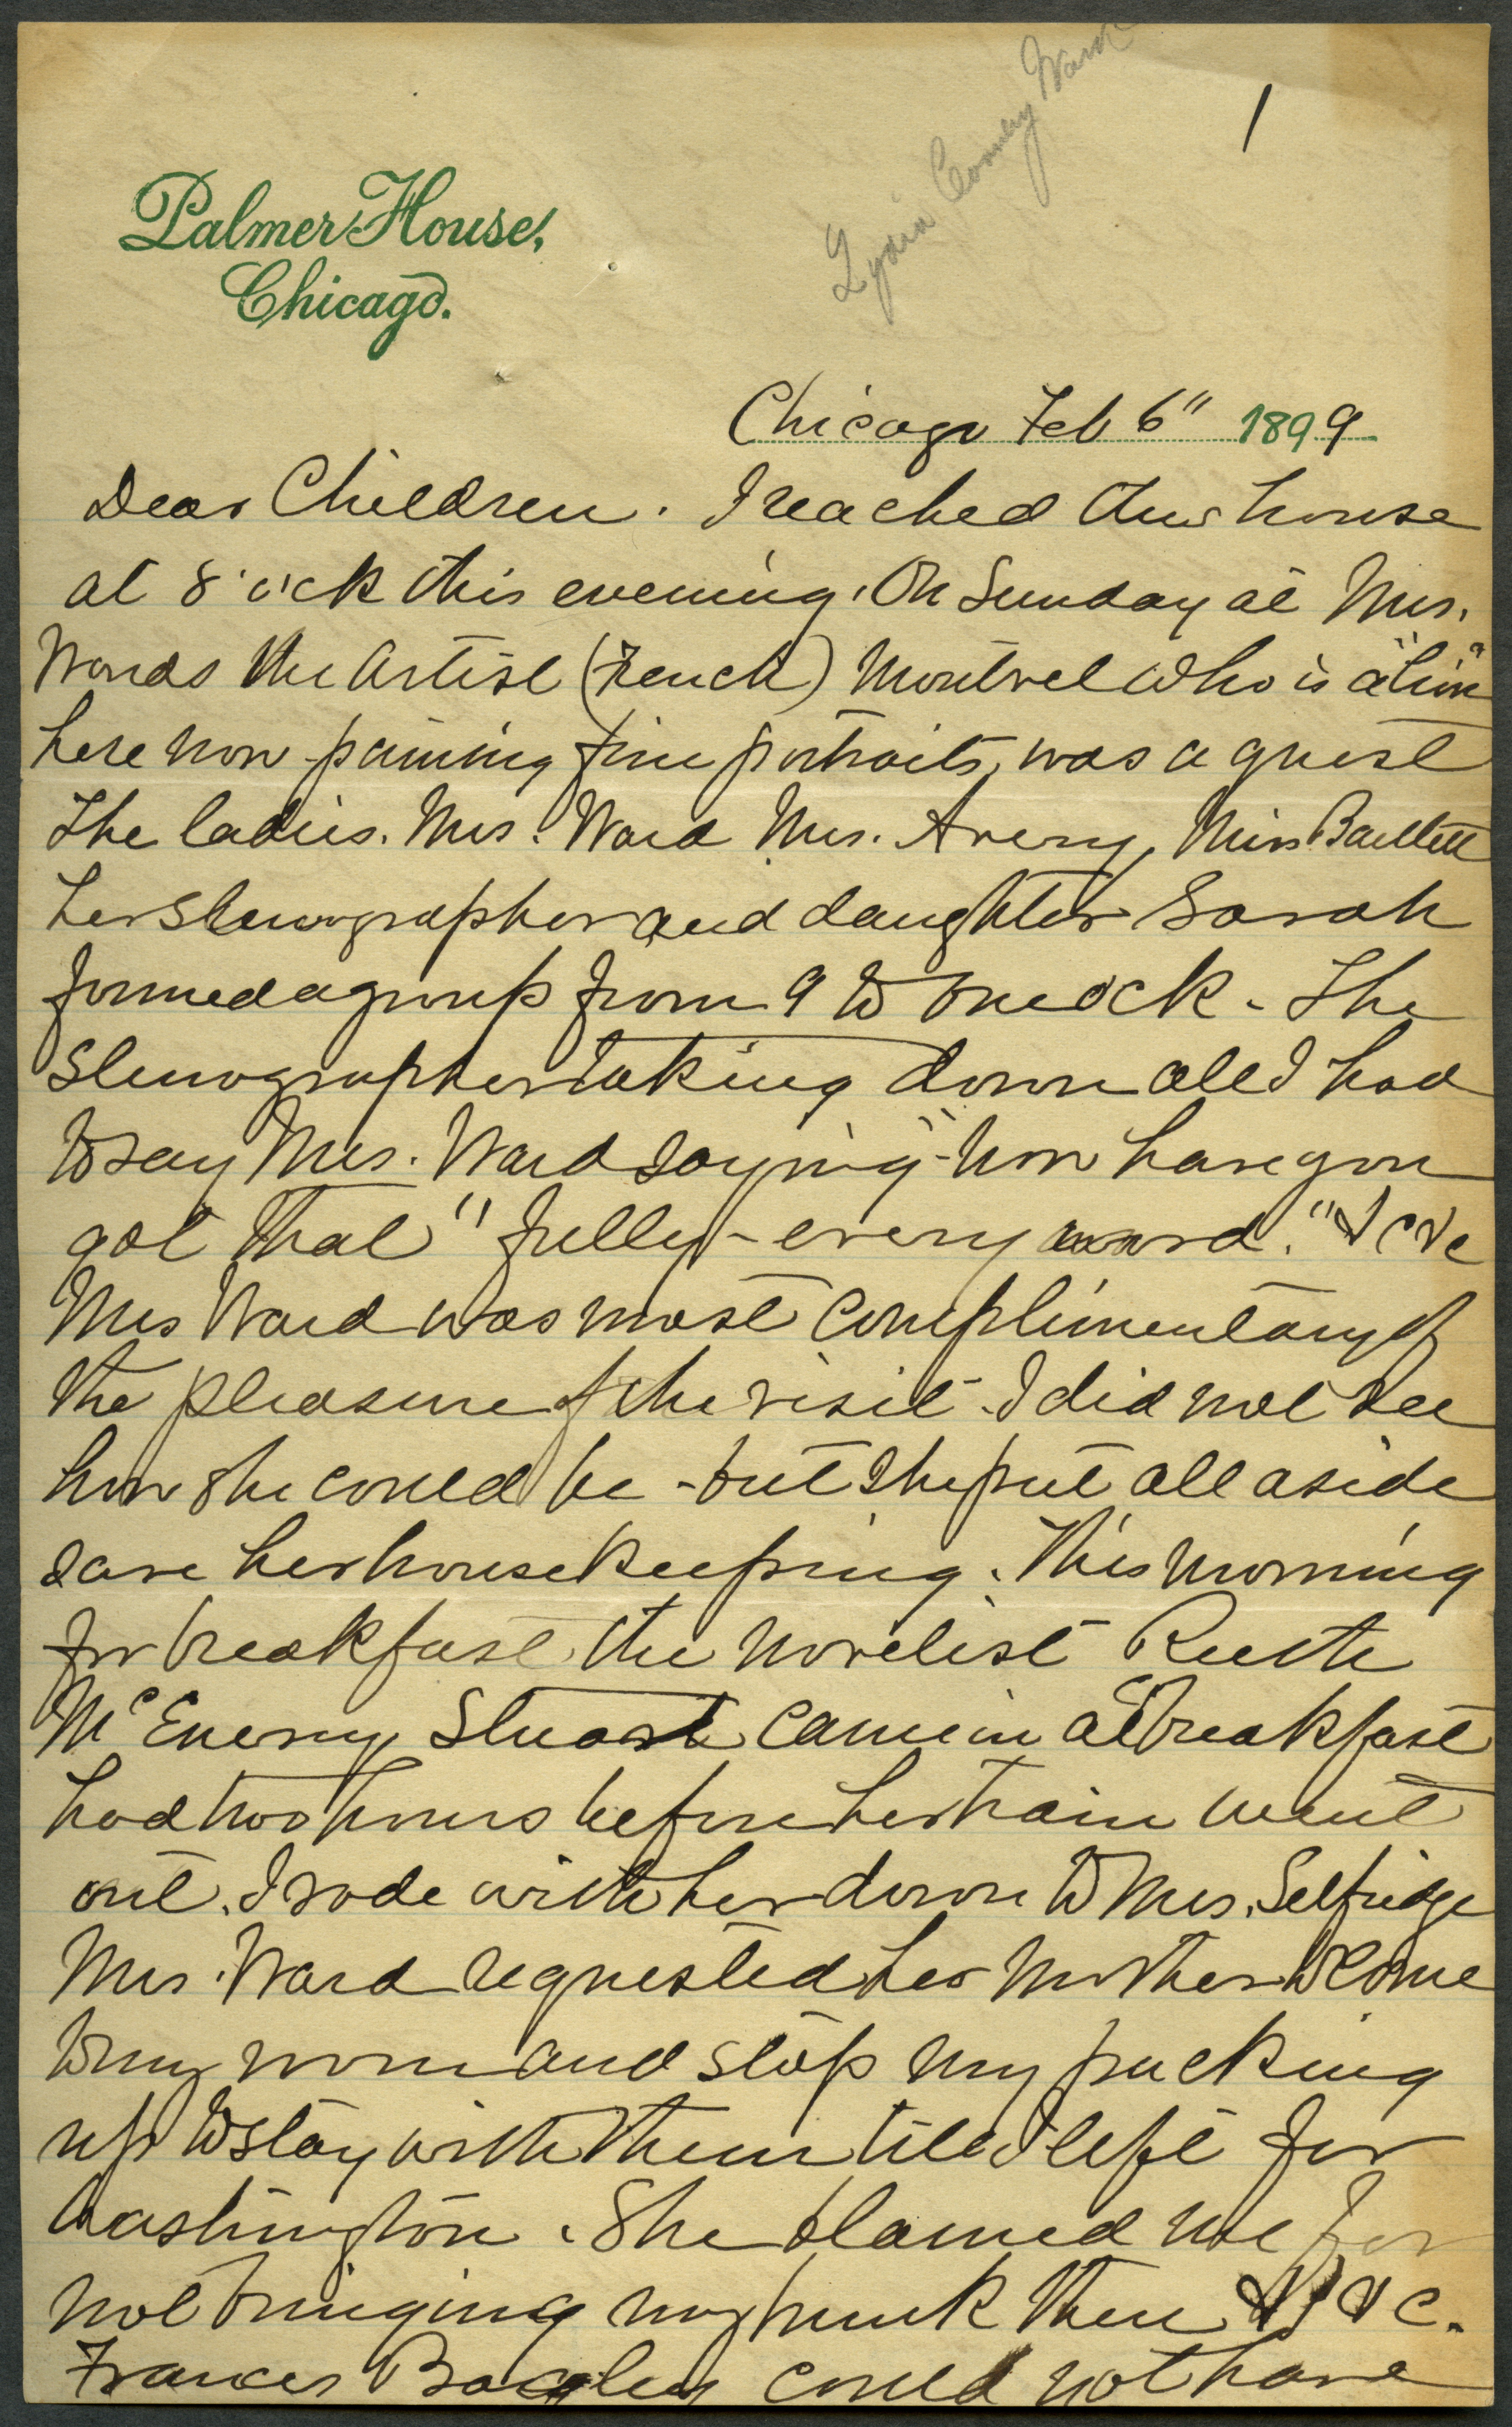 Lydia Coonley Ward
1
Palmer House,
Chicago.
Chicago Feb 6" 1899
Dear Children. I reached this house
at 8 o'ck this evening. On Sunday at Mrs.
Wards the Artist (French) Montvel who is a "lion"
here now painting fine portraits, was a guest
The ladies. Mrs. Ward Mrs. Avery, Miss Bartlett
her stenographer and daughter Sarah
formed a group from 9 to one ock - The
Stenographer taking down all I had
to say Mrs. Ward saying "now have you
got that" fully - every word." &c &c
Mrs Ward was most complimentary of
the pleasure of the visit - I did not see
how she could be - but she put all aside
save her housekeeping. This morning
for breakfast the novelist Ruth
McEnery Stuart came in at breakfast
had two hours before her train went
out. I rode with her down to Mrs. Selfridge
Mrs. Ward requested her mother to come
to my room and stop my packing
up to stay with them till I left for
Washington. She blamed me for
not bringing my trunk then &c &c.
Frances Bagley could not have